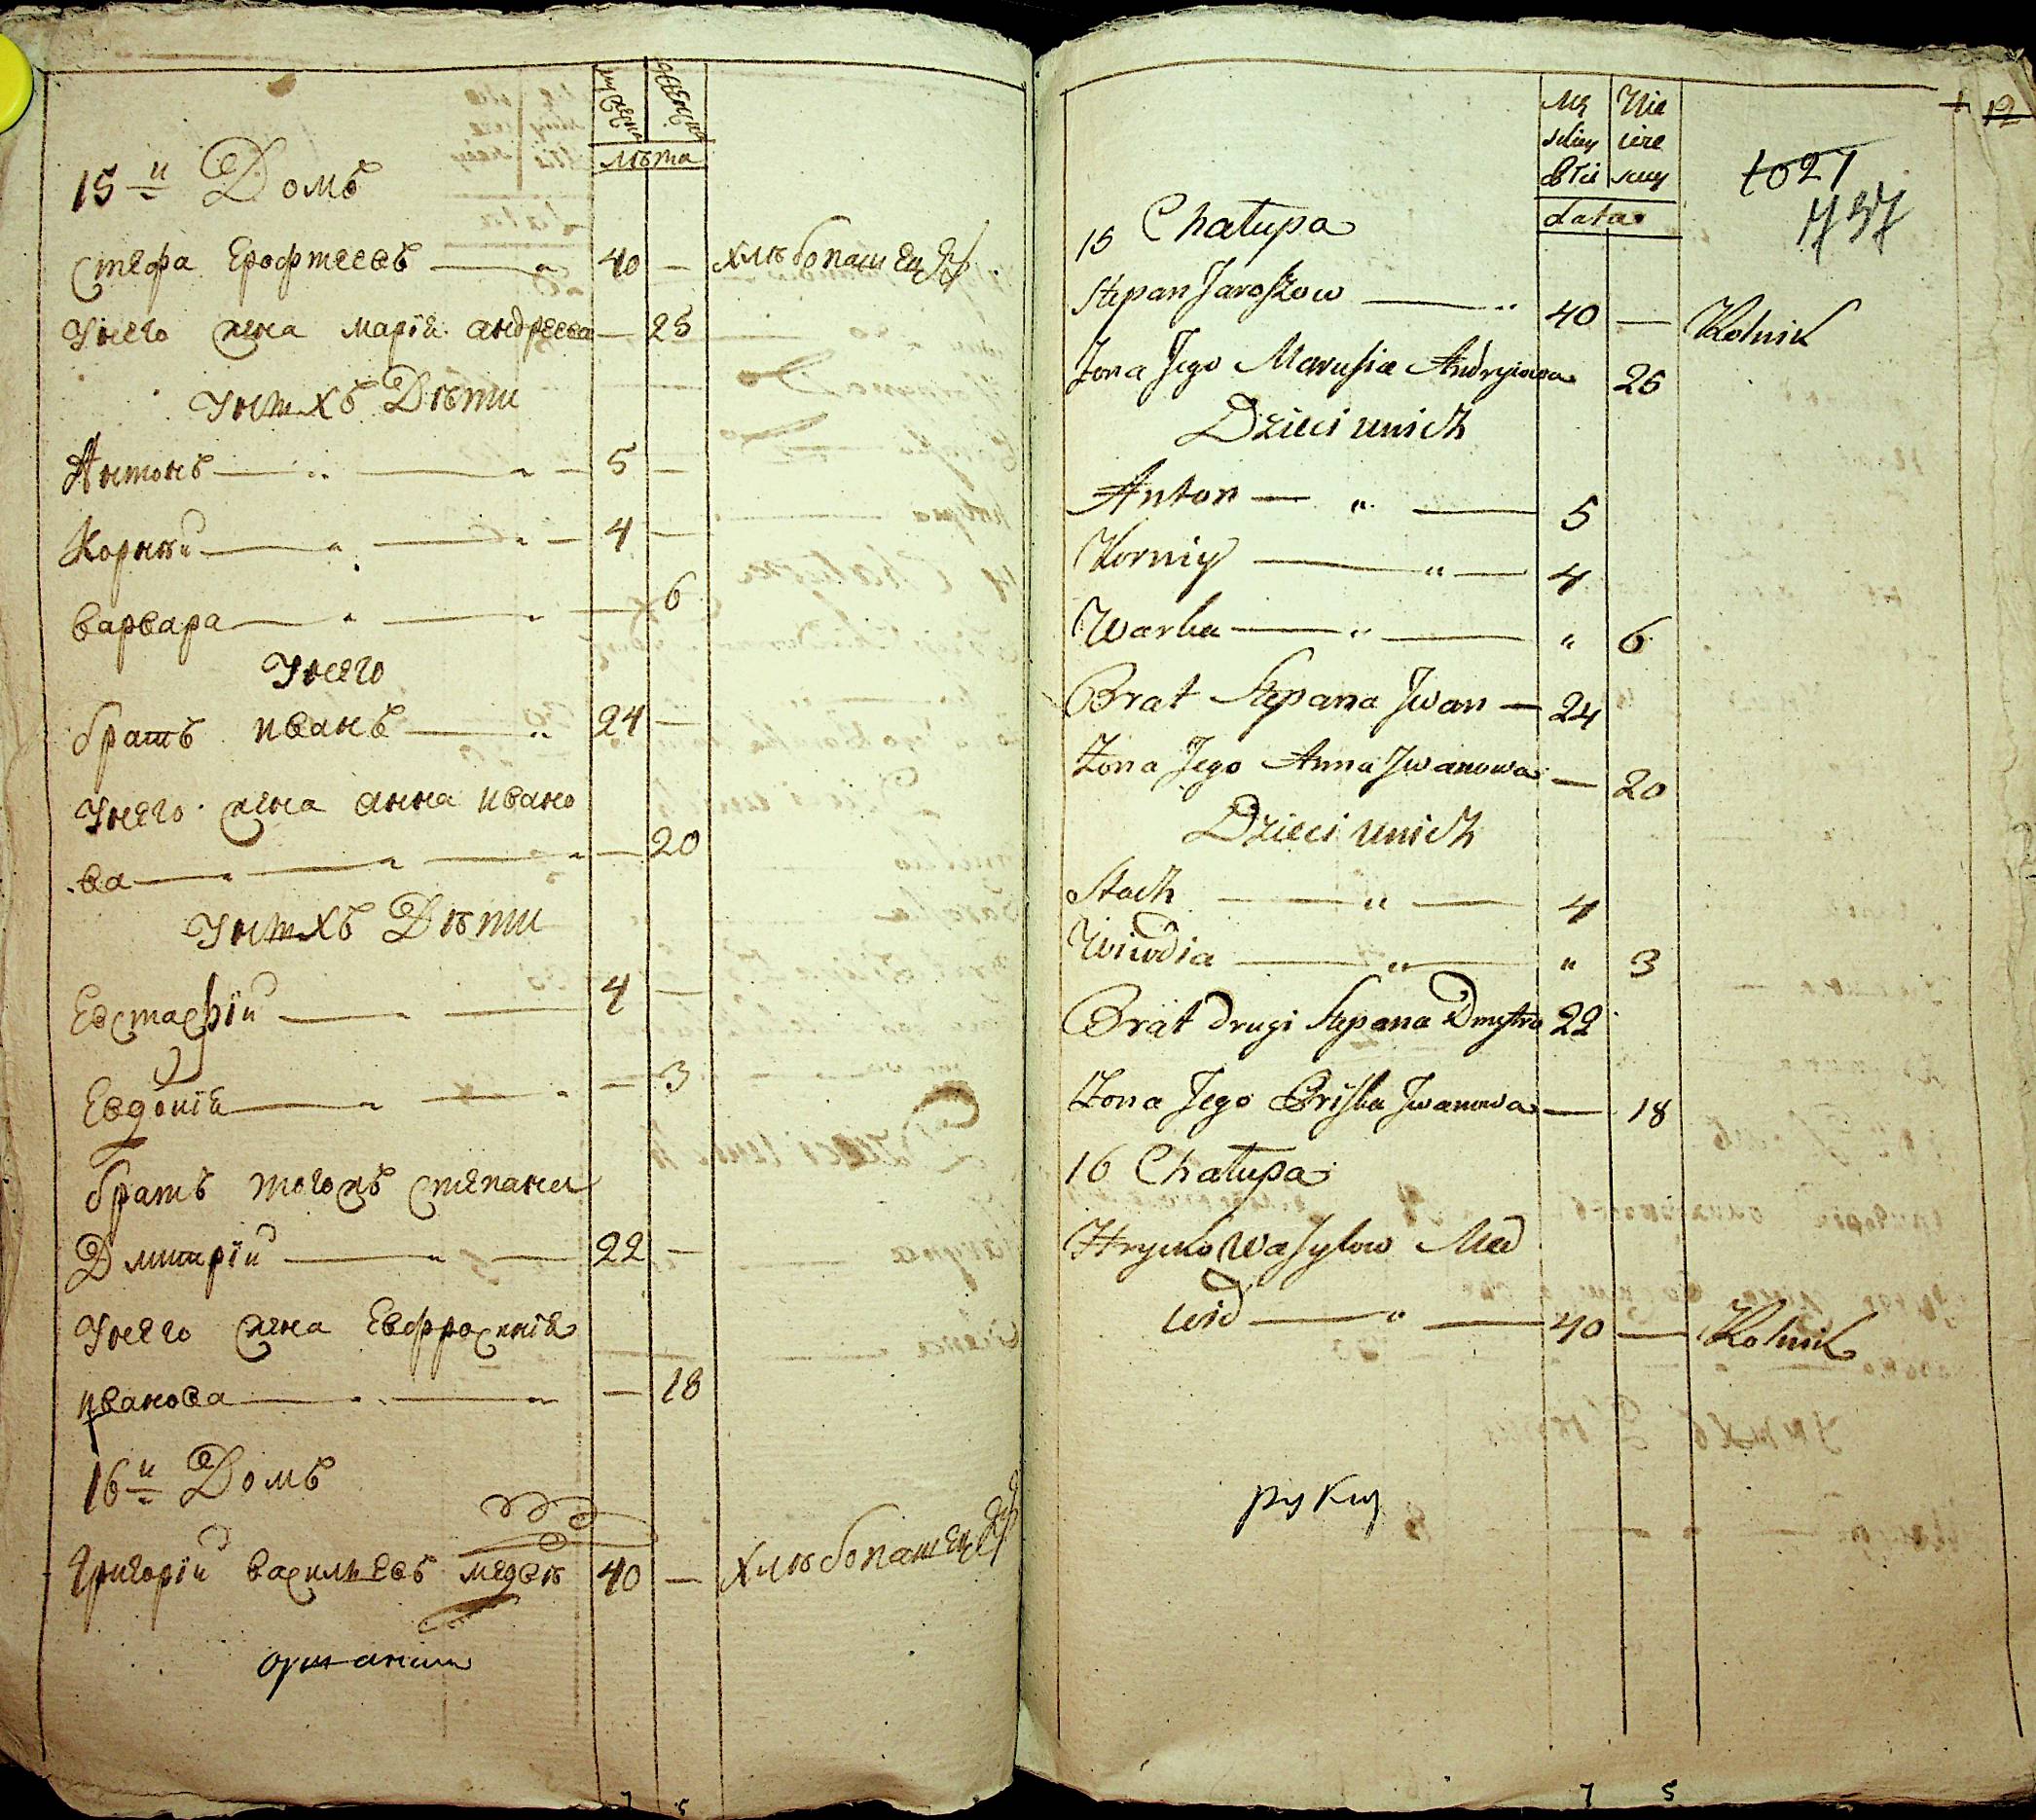 мужеска
женска
лѣта
15 й Домъ
Стефа Ерофтеевъ — „ 40 — хлѣбопашецъ
У него жена Марія Андреева — 25
У нихъ Дѣти
Антонъ — „ — „ — 5 —
Корнѣй — „ — „ — 4 —
Варвара — „ — „ — 6
У него
братъ иванъ — „ 24 —
У него жена анна ивано
ва — „ — „ — 20
У нихъ Дѣти
Евстафій — „ — 4 —
Евдокія — „ — „ — 3
братъ тогожъ степана
Дмитрій — „ — 22 —
У него жена Евфросинія
иванова — „ — „ — 18
16 й Домъ
Григорій васильевъ медвѣ 40 — хлѣбопашецъ
7 5
+ 12
Mę Nie
lata
1021
737
15 Chałupa
Stepan Jaroszow — „ 40 — Rolnik
Zona Jego Marusia Andryiowa 25
Dzieci unich
Anton — „ — 5
Korniy — „ — 4
Warka — „ — „ 6
Brat Stepana Jwan — 24
Zona Jego Anna Jwanowa — 20
Dzieci unich
Stach — „ — 4
Wiwdia — „ — „ 3
Brat drugi Stepana Dmytro 22
Zona Jego Pryska Jwanowa — 18
16 Chałupa
Hrycko Wasylow Med
wid — „ — 40 — Rolnik
руку
7 5